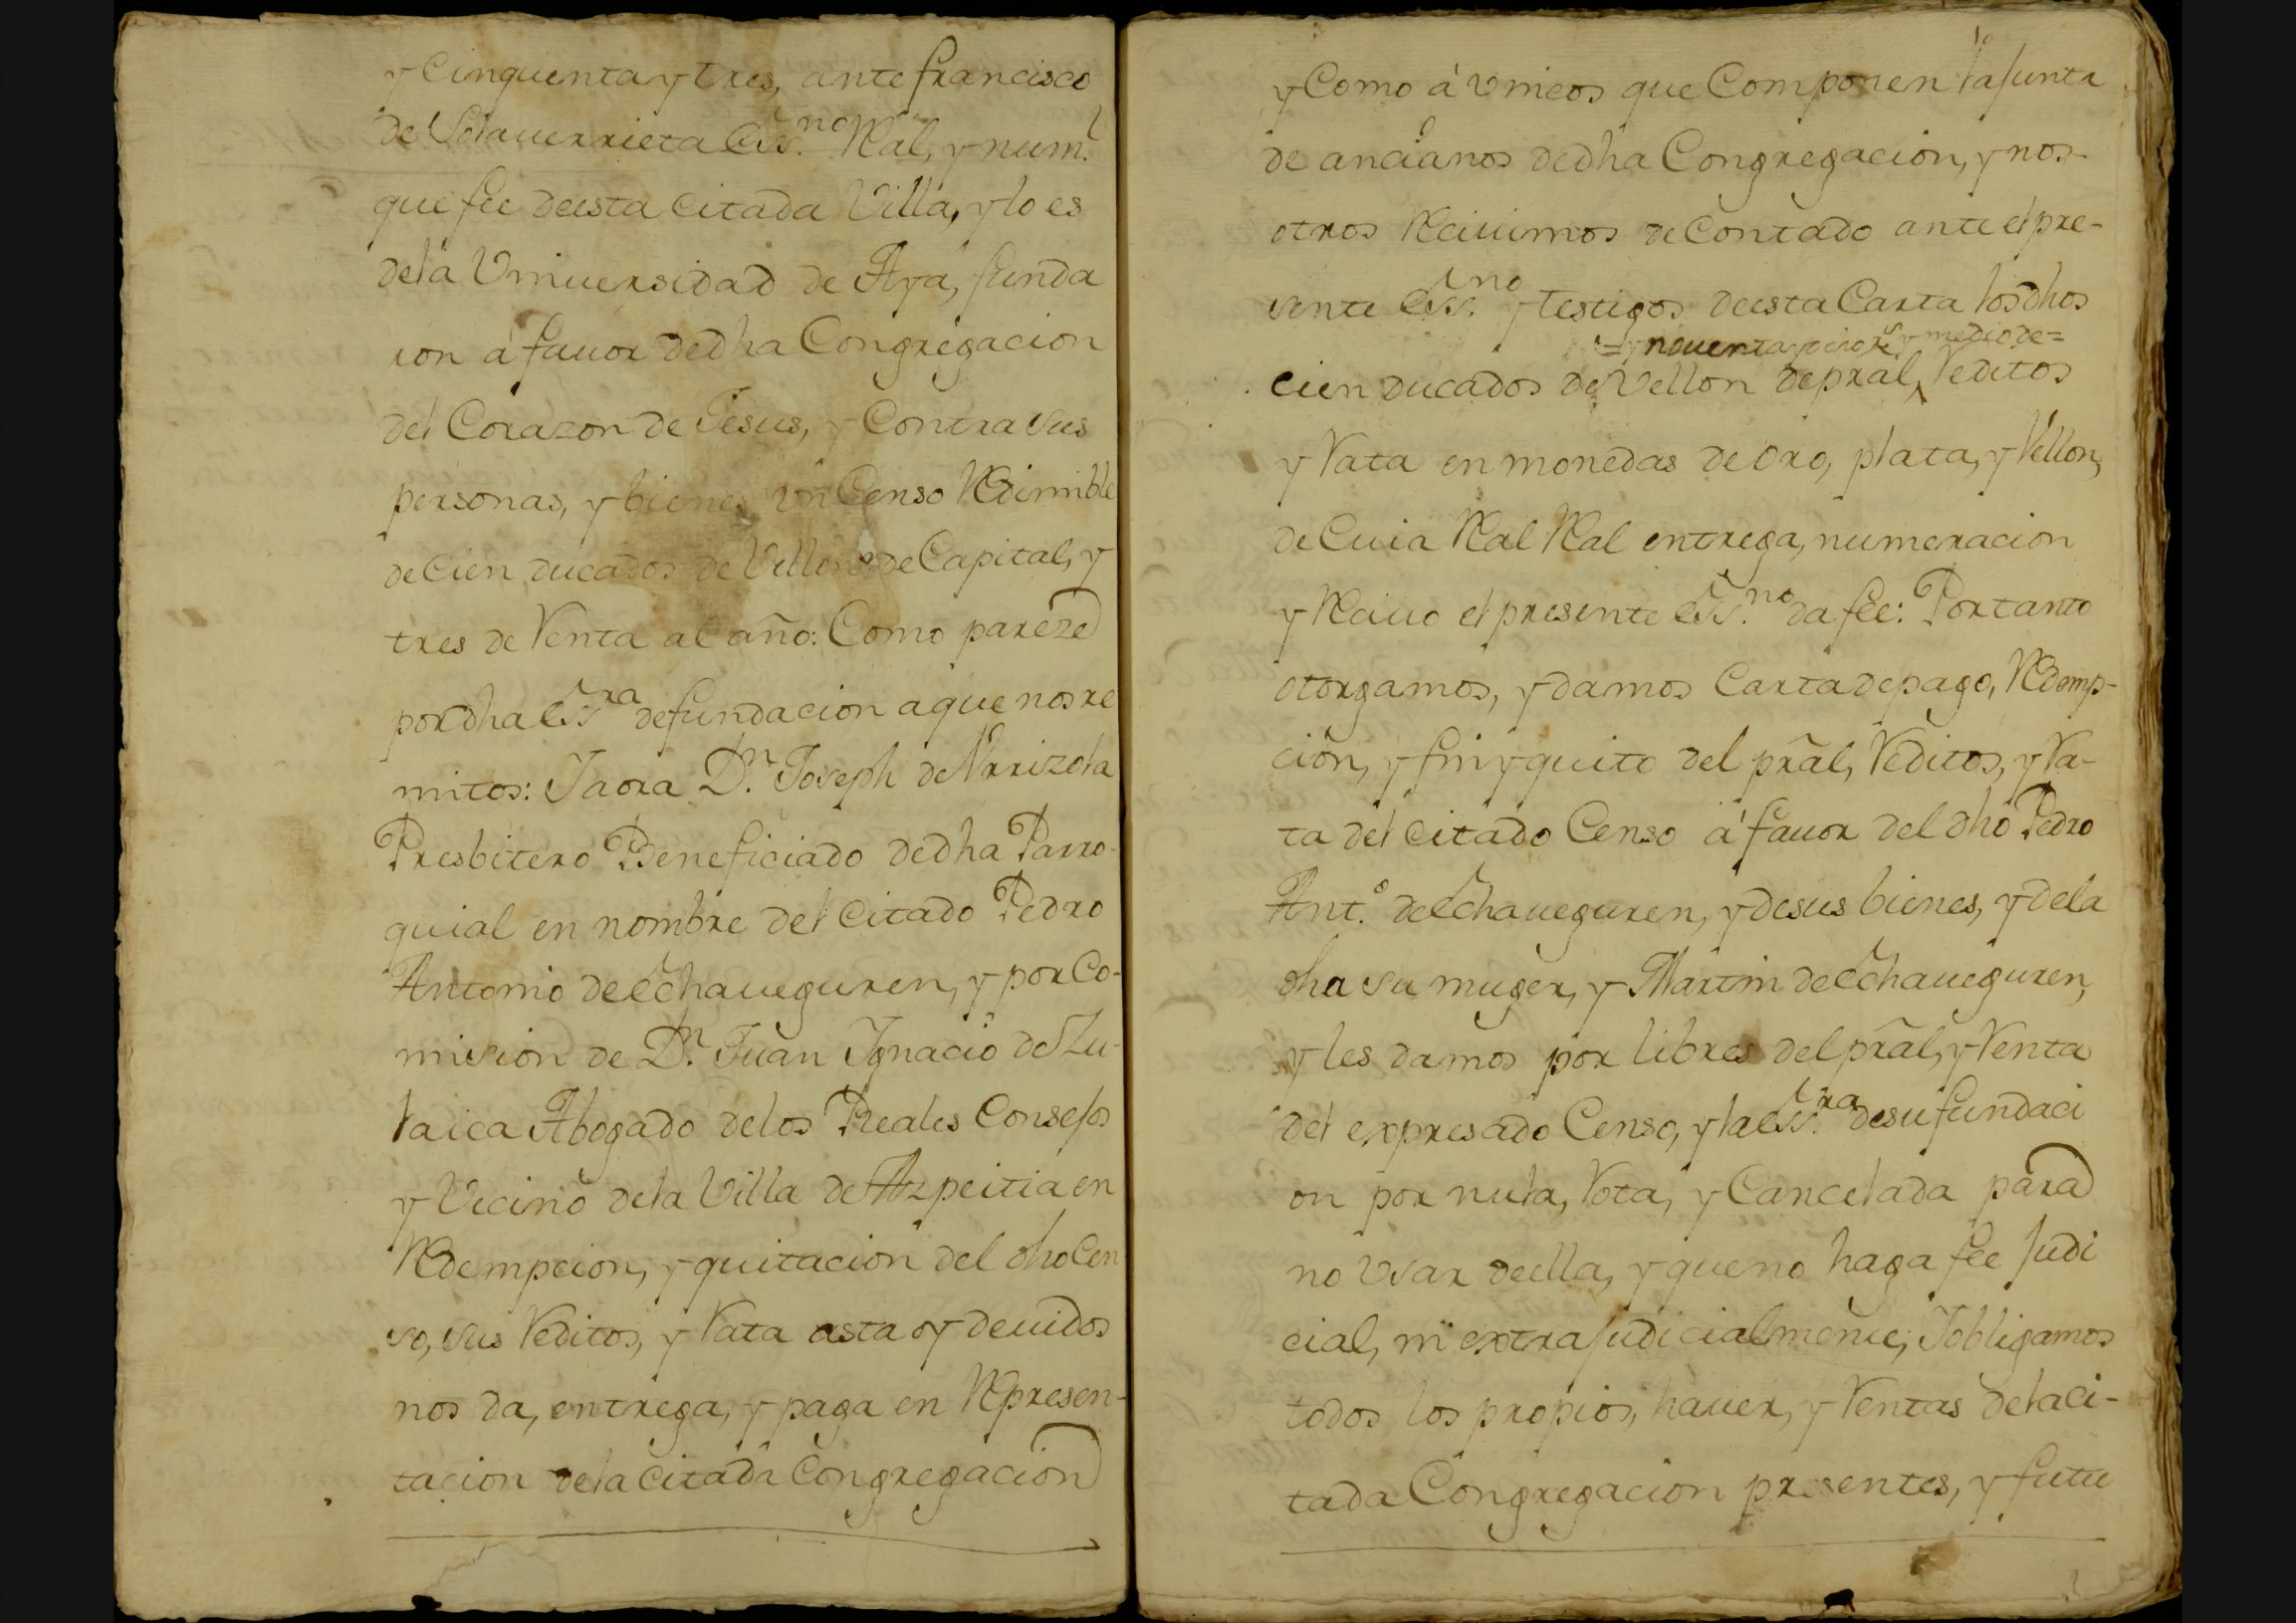 y Cinquenta y tres, ante francisco
de Solauerrieta Ess.no Rl, y num.l
que fue de esta citada Villa, y lo es
de la Vniuersidad de Aya, funda
ron á fauor de dha Congregacion
del Corazon de Jesus, y Contra sus
personas, y bienes vn Censo Redimible
de Cien ducados de Vellon de Capital, y
tres de Renta al año: Como pareze
por dha Ess.ra de fundacion a que nos re
mitos: Y aora D.n Joseph de Vrrizola
Presbitero Beneficiado de dha Parro-
quial en nombre del citado Pedro
Antonio de Echaueguren, y por Co-
mision de D.n Juan Ygnacio de Zu-
laica Abogado de los Reales Consejos
y Vecino de la Villa de Azpeitia en
Redempcion, y quitacion del dho Cen
so, sus Reditos, y Rata asta oy deuidos
nos da, entrega, y paga en Represen-
tacion de la citada Congregacion
10
y Como á vnicos que Componen la Junta
de ancianos de dha Congregacion, y nos-
otros Reciuimos de Contado ante el pre-
sente Ess.no y testigos de esta Carta los dhos
= y nouenta y ocho rs y medio de =
cien ducados de Vellon de pral, Reditos
y Rata en monedas de oro, plata, y Vellon,
de Cuia Ral Ral entrega, numeracion
y Reciuo el presente Ess.no da fee: Por tanto
otorgamos, y damos Carta de pago, Redemp-
cion, y fin y quito del pral, Reditos, y Ra-
ta del citado Censo á fauor del dho Pedro
Ant.o de Echaueguren, y de sus bienes, y de la
dha su muger, y Martin de Echaueguren,
y les damos por libres del pral, y Renta
del expresado Censo, y la Ess.ra de su fundaci
on por nula, Rota, y Cancelada para
no vsar de ella, y que no haga fee Judi
cial, ni extrajudicialmente; Y obligamos
todos los propios, hauer, y Rentas de la ci-
tada Congregacion presentes, y futu